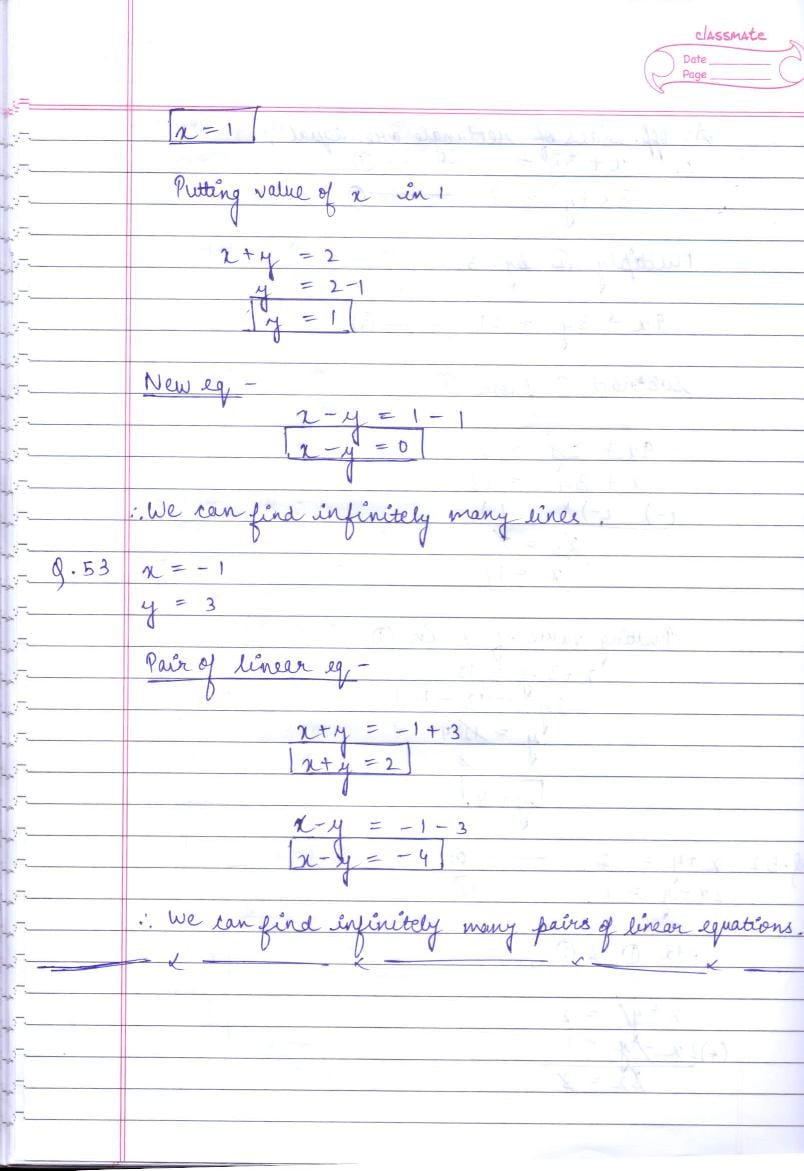 classmate
Date
Page
x = 1
Putting value of x in 1
x + y = 2
y = 2 - 1
y = 1
New eq -
x - y = 1 - 1
x - y = 0
∴ We can find infinitely many lines.
Q.53 x = - 1
y = 3
Pair of linear eq -
x + y = -1 + 3
x + y = 2
x - y = -1 - 3
x - y = - 4
∴ We can find infinitely many pairs of linear equations.